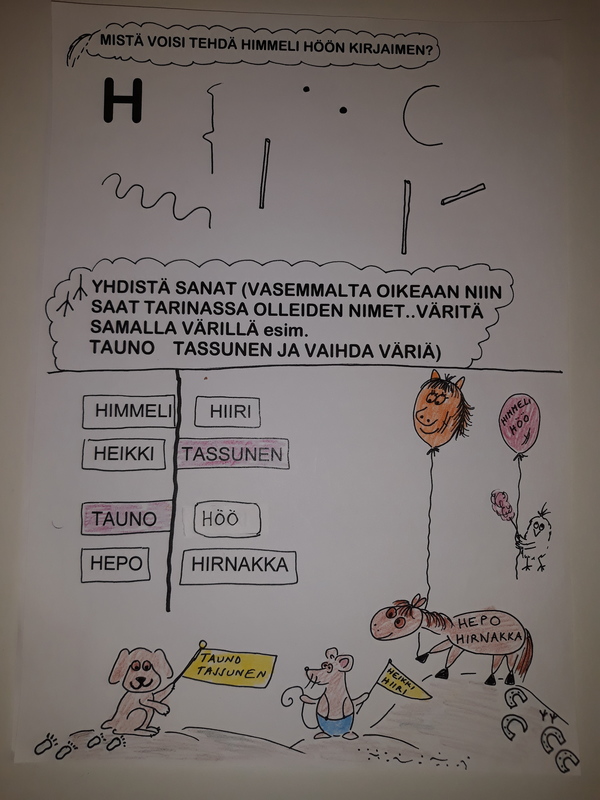 MISTÄ VOISI TEHDÄ HIMMELI HÖÖN KIRJAIMEN?
H
YHDISTÄ SANAT (VASEMMALTA OIKEAAN NIIN
SAAT TARINASSA OLLEIDEN NIMET..VÄRITÄ
SAMALLA VÄRILLÄ esim.
TAUNO TASSUNEN JA VAIHDA VÄRIÄ)
HIMMELI HIIRI
HEIKKI TASSUNEN
TAUNO HÖÖ
HEPO HIRNAKKA
HIMMELI
HÖÖ
HEPO
HIRNAKKA
TAUNO
TASSUNEN
HEIKKI
HIIRI